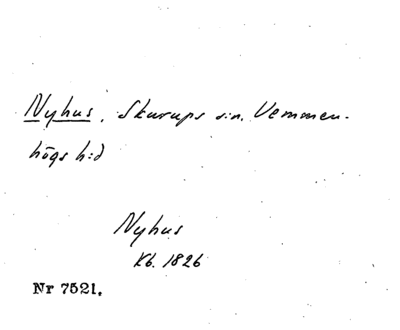 Nyhus, Skurups s:n, Vemmen-
högs h:d
Nyhus
Kb. 1826
Nr 7521.